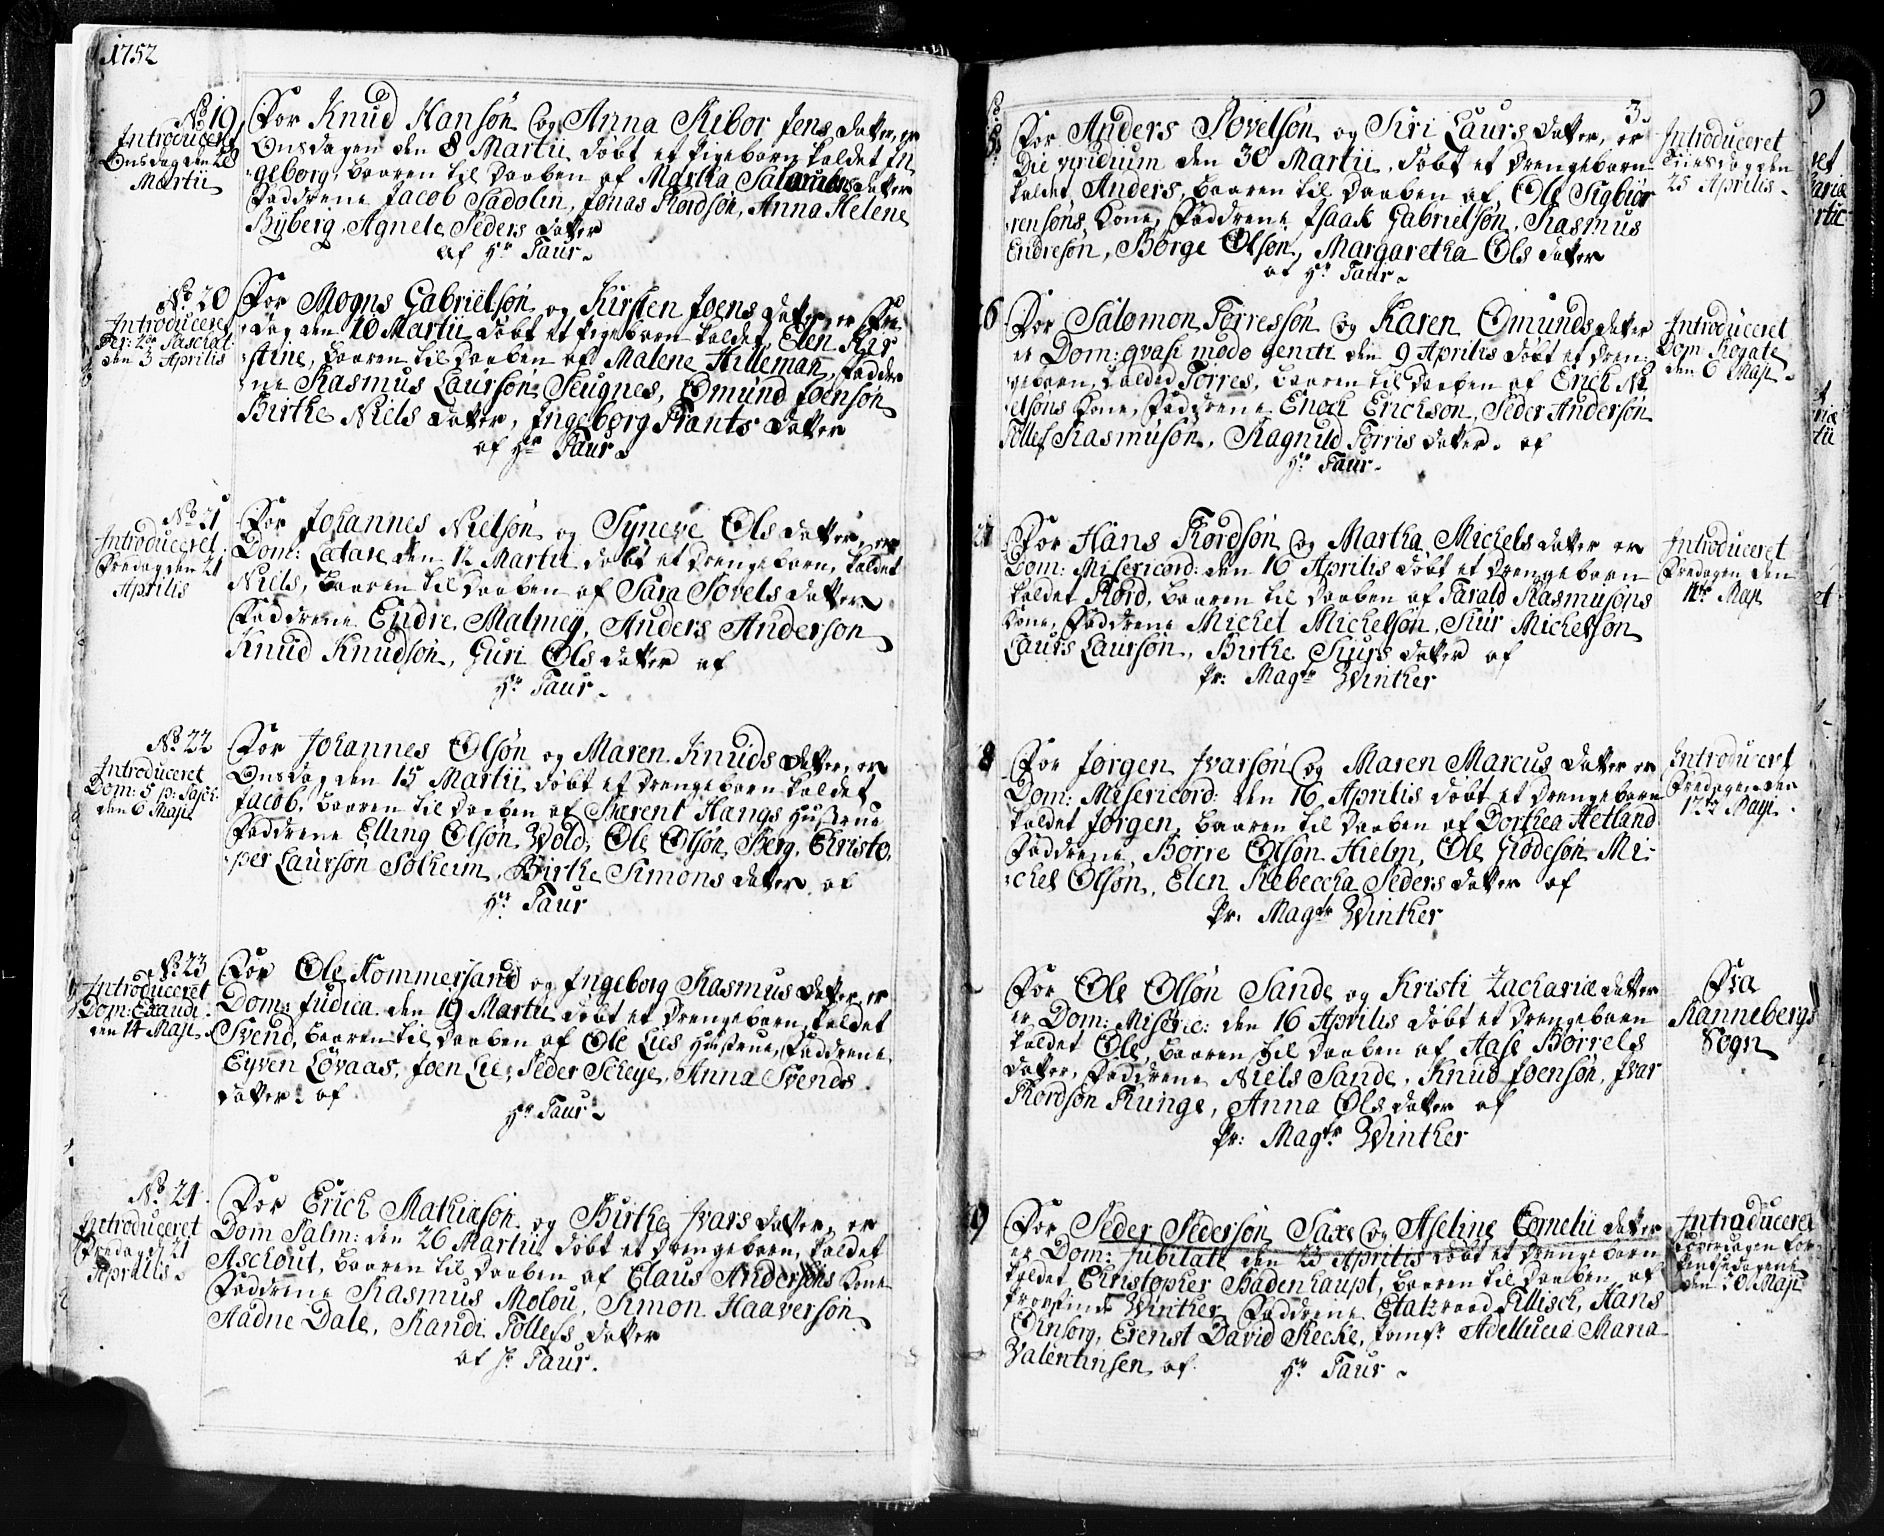 1752
No 19
Introduceret
Onsdagen den 28
Martii
For Knud Hansøn og Anna Ribor Jens datter, er
Onsdagen den 8 Martii døbt et Pigebarn kaldet In
geborg, baaren til Daaben af Martha Salamons datter
Faddrene Jacob Sadolin, Jonas Thordsøn, Anna Helene
Byberg, Agnete Peders datter
af Hr Taur
No 20
Introduceret
Fer: 2da Paschat
den 3 Aprilis
For Mogns Gabrielsøn og Kirsten Joens datter, er Fre
dag den 10 Martii døbt et Pigebarn kaldet, Elen Kir
stine, baaren til daaben af Malene Hilleman, Faddre
ne Rasmus Laursøn Seugnes, Omund Joensøn
Birthe Niels datter, Ingeborg Frants datter
af Hr Taur
No 21
Introduceret
Fredag den 21
Aprilis
For Johannes Nielsøn og Syneve Ols datter, er
Dom: Lætare den 12 Martii døbt et Drengebarn, kaldet
Niels, baaren til daaben af Sara Povels datter
Faddrene Endre Malmey, Anders Anderson
Knud Knudsøn, Guri Ols datter af
Hr Taur
No 22
Introduceret
Dom: 5 p: Pasch:
den 6 Maji
For Johannes Olsøn og Maren Knuds datter, er
Onsdag den 15 Martii døbt et Drengebarn kaldet
Jacob, baaren til Daaben af Berent Hangs Hustrue
Faddrene Elling Olsøn Wold, Ole Olsøn Berg, Christo
per Laursøn Solheim, Birthe Simons datter af
Hr Taur
No 23
Introduceret
Dom: Exaudi
den 14 Maji
For Ole Hommersand og Ingeborg Rasmus datter, er
Dom: Judica den 19 Martii døbt et Drengebarn, kaldet
Svend, baaren til daaben af Ole Lies Hustrue, Faddrene
Eyven Lovaas, Joen Lie, Peder Scheye, Anna Svends
datter af
Hr Taur
No 24
Introduceret
Fredag d 21
Aprilis
For Erich Mathiasøn og Birthe Ivars datter, er
Dom Palm: den 26 Martii døbt et Drengebarn, kaldet
Aschout, baaren til daaben af Claus Andersøns Kone
Faddrene Rasmus Molou, Simon Haaversøn
Aadne Dale, Randi Tollefs datter
af Hr Taur
3
For Anders Povelsøn og Siri Laurs datter, er
Die viridium den 30 Martii, døbt et Drengebarn
kaldet Anders, baaren til daaben af, Ole Sigbiør
rensøns Kone, Faddrene Isaak Gabrielsøn, Rasmus
Endresøn, Børge Olsøn, Margaretha Ols datter
af Hr Taur
Introduceret
Tiirsdag den
25 Aprilis
6
For Salomon Torresson og Karen Omunds datter
er Dom: qvasi modo geniti den 9 Aprilis døbt et Dren
gebarn, kaldet Torres, baaren til daaben af Erich Ni
elsøns Kone, Faddrene Enoch Erickson, Peder Andersøn
Tollef Rasmusøn, Ragnild Torris datter af
Hr Taur
Introduceret
Dom Rogate
den 6 Maji
27
For Hans Thordsøn og Martha Michels datter er
Dom: Misericord: den 16 Aprilis døbt et Drengebarn
kaldet Thord, baaren til daaben af Tarald Rasmusøns
Kone, Faddrene Michel Michelsøn, Siur Michelsøn
Laurs Laursøn, Birthe Siurs datter af
Pr: Magr Winther
Introduceret
Fredagen den
12te Maji
8
For Jørgen Ivarsøn og Maren Marcus datter er
Dom: Misericord: den 16 Aprilis døbt et Drengebarn
kaldet Jørgen, baaren til daaben af Dorthea Hetland
Faddrene Børre Olsøn Hielm, Ole Giødesøn Mi
chel Olsøn, Elen Rebeccha Peders datter af
Pr: Magtr Winther
Introducert
Fredagen den
12te Maji
For Ole Olsøn Sande og Kristi Zachariæ datter
er Dom: Miseric: den 16 Aprilis døbt et Drengebarn
kaldet Ole, baaren til daaben af Aase Børrels
datter, Faddrene Niels Sande, Knud Joensøn, Ivar
Thordsøn Runge, Anna Ols datter af
Pr: Magtr Winther
Fra
Rannebergs
Sogn
9
For Peder Pedersøn Saxe og Aseline Cornelii datter
er Dom: Jubilate den 23 Aprilis døbt et Drengebarn
kaldet Christopher Badenhaupt, baaren til Daaben af
Provstinde Winther Faddrene Etatzraad Tillisch, Hans
Erenst David Recke, Jomfr Adellucia Maria
Valentinsen af
Hr Taur
Introduceret
Løverdagen for
Pintzedagene
den 20 Maji